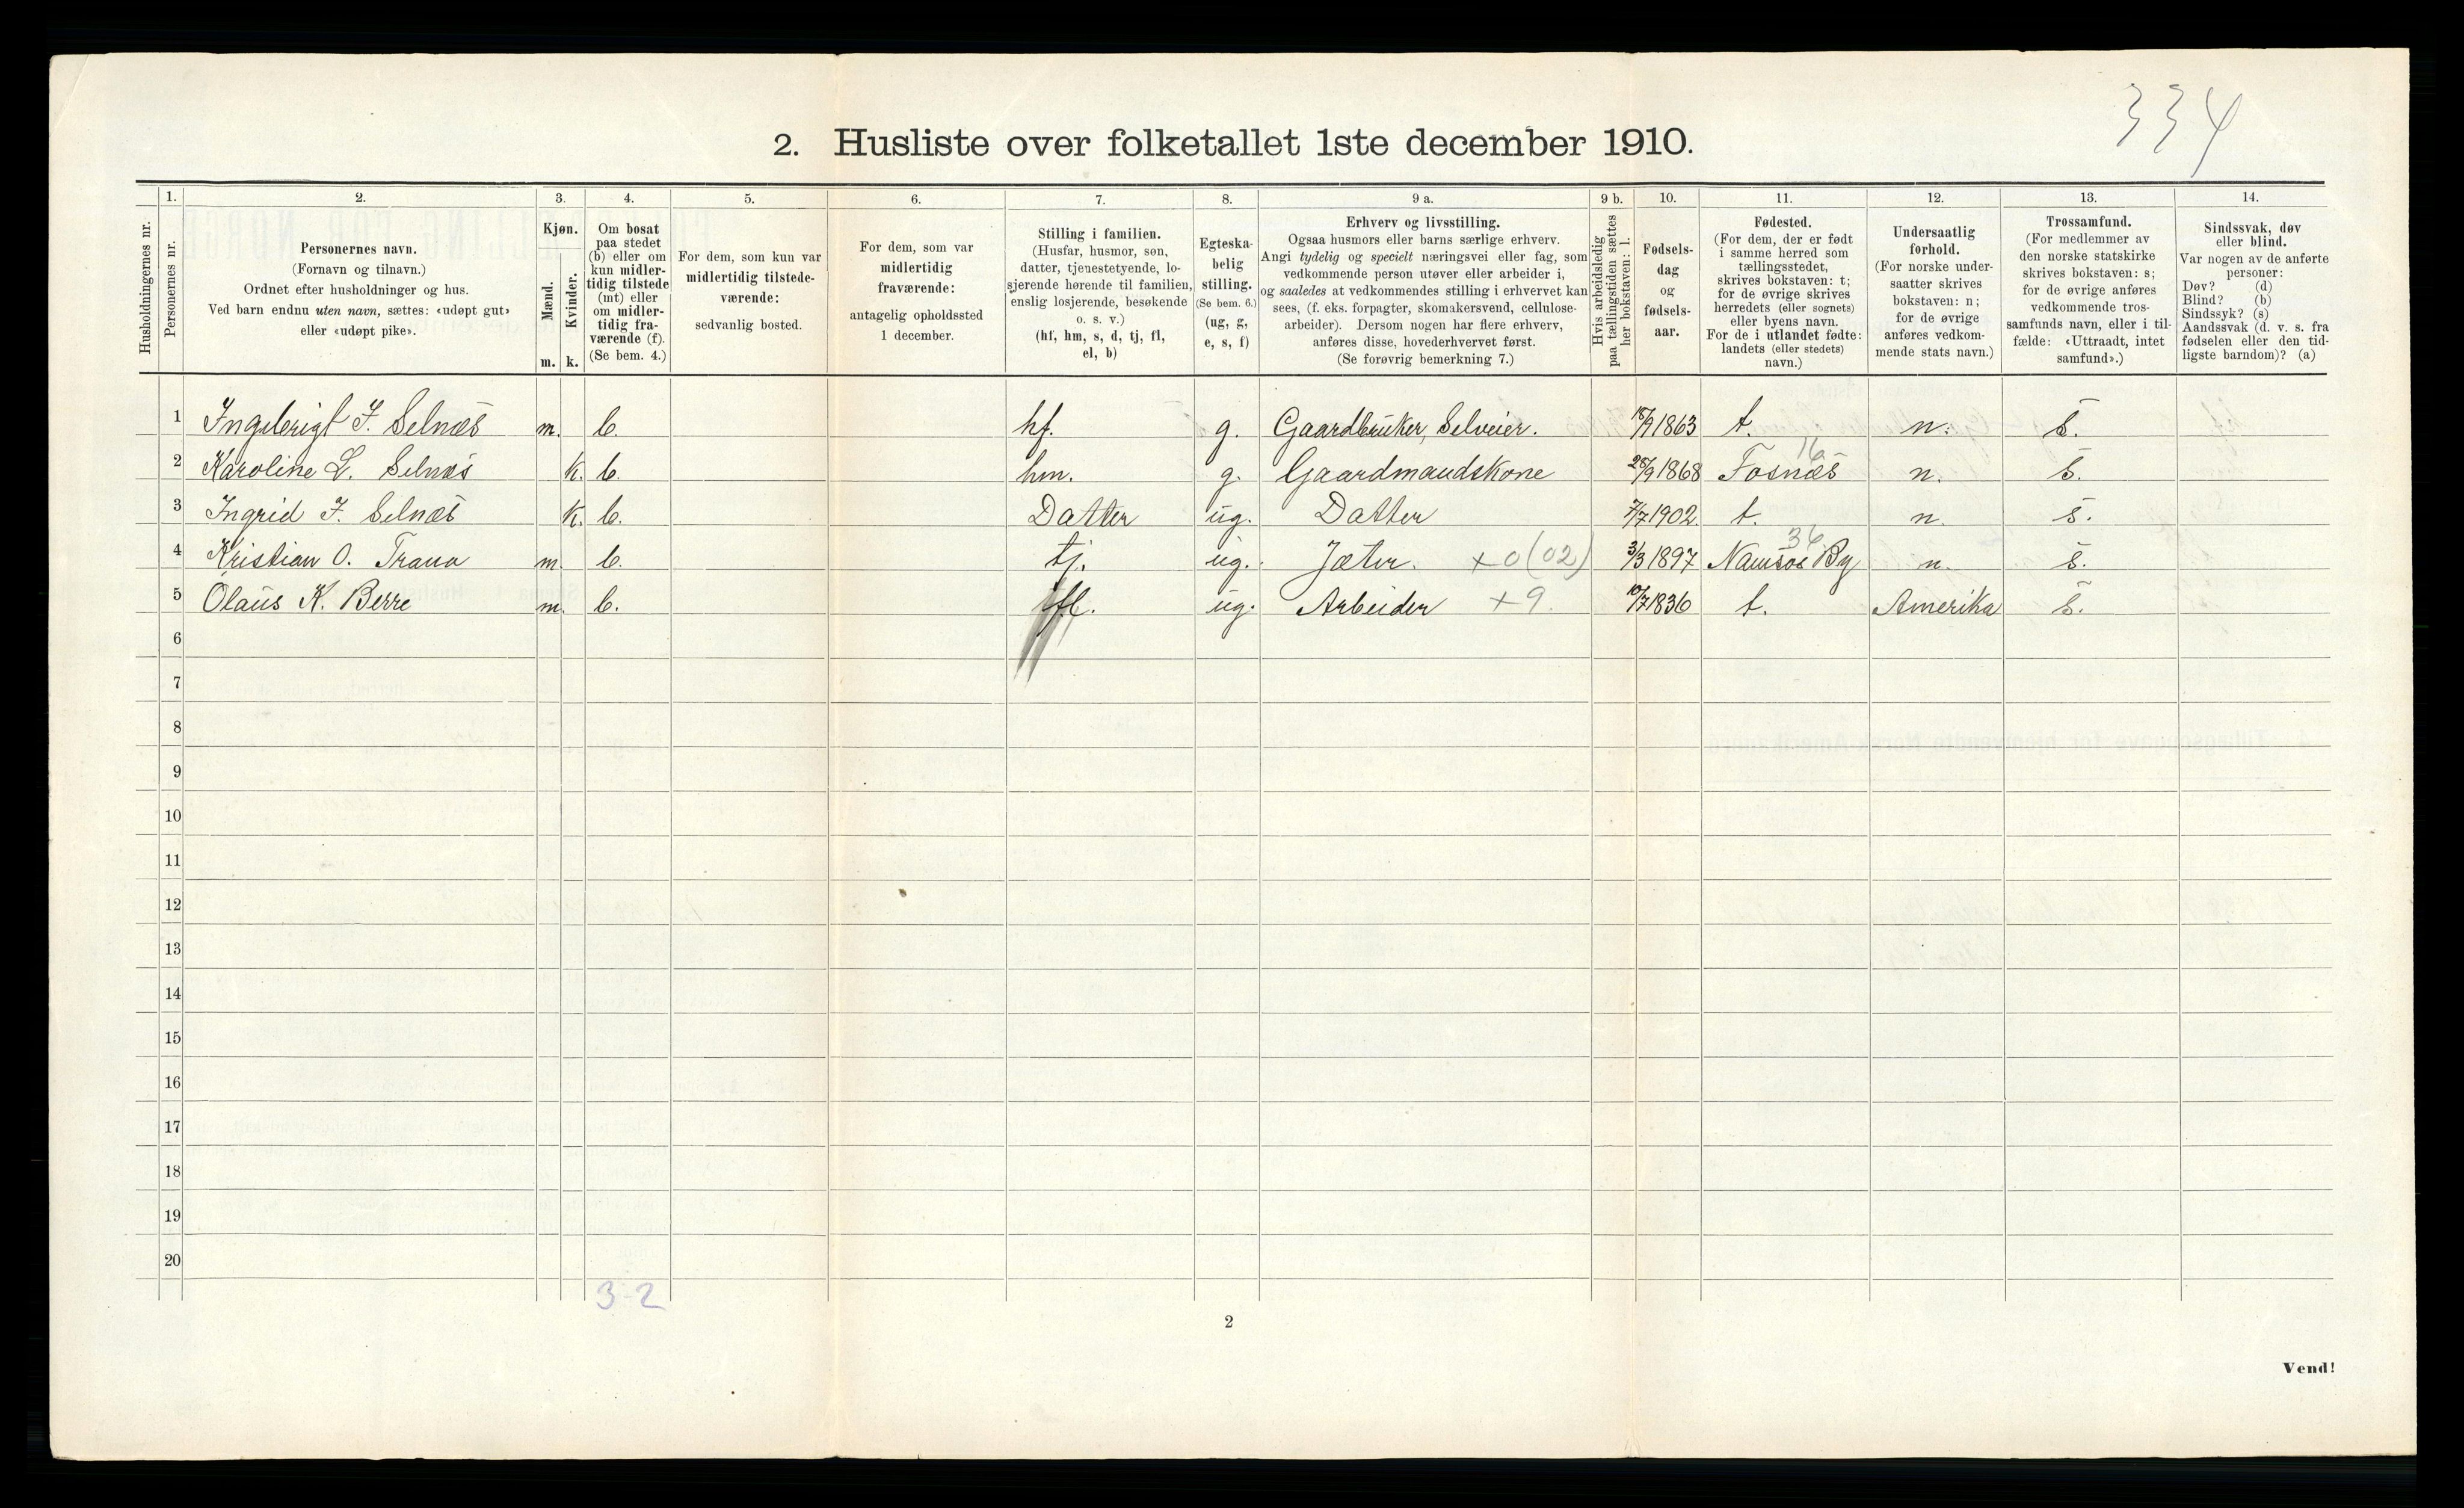 334
2. Husliste over folketallet 1ste december 1910.
Husholdningernes nr.
1. Personernes nr.
2. Personernes navn.
(Fornavn og tilnavn.)
Ordnet efter husholdninger og hus.
Ved barn endnu uten navn, sættes: «udøpt gut»
eller «udøpt pike».
3. Kjøn.
Mænd. m.
Kvinder. k.
4. Om bosat
paa stedet
(b) eller om
kun midler-
tidig tilstede
(mt) eller
om midler-
tidig fra-
værende (f).
(Se bem. 4.)
5. For dem, som kun var
midlertidig tilstede-
værende:
sedvanlig bosted.
6. For dem, som var
midlertidig
fraværende:
antagelig opholdssted
1 december.
7. Stilling i familien.
(Husfar, husmor, søn,
datter, tjenestetyende, lo-
sjerende hørende til familien,
enslig losjerende, besøkende
o. s. v.)
(hf, hm, s, d, tj, fl,
el, b)
8. Egteska-
belig
stilling.
(Se bem. 6.)
(ug, g,
e, s, f)
9 a. Erhverv og livsstilling.
Ogsaa husmors eller barns særlige erhverv.
Angi tydelig og specielt næringsvei eller fag, som
vedkommende person utøver eller arbeider i,
og saaledes at vedkommendes stilling i erhvervet kan
sees, (f. eks. forpagter, skomakersvend, cellulose-
arbeider). Dersom nogen har flere erhverv,
anføres disse, hovederhvervet først.
(Se forøvrig bemerkning 7.)
9 b. Hvis arbeidsledig
paa tællingstiden sættes
her bokstaven: l.
10. Fødsels-
dag
og
fødsels-
aar.
11. Fødested.
(For dem, der er født
i samme herred som
tællingsstedet,
skrives bokstaven: t;
for de øvrige skrives
herredets (eller sognets)
eller byens navn.
For de i utlandet fødte:
landets (eller stedets)
navn.)
12. Undersaatlig
forhold.
(For norske under-
saatter skrives
bokstaven: n;
for de øvrige
anføres vedkom-
mende stats navn.)
13. Trossamfund.
(For medlemmer av
den norske statskirke
skrives bokstaven: s;
for de øvrige anføres
vedkommende tros-
samfunds navn, eller i til-
fælde: «Uttraadt, intet
samfund».)
14. Sindssvak, døv
eller blind.
Var nogen av de anførte
personer:
Døv? (d)
Blind? (b)
Sindssyk? (s)
Aandssvak (d. v. s. fra
fødselen eller den tid-
ligste barndom)? (a)
1 Ingebrigt J. Selnæs m. b. hf. g. Gaardbruker, Selveier. 18/9 1863 t. n. s.
16
2 Karoline L. Selnæs k. b. hm. g. Gaardmandskone 28/9 1868 Fosnæs n. s.
3 Ingrid J. Selnæs k. b. Datter ug. Datter 7/7 1902 t. n. s.
36
4 Kristian O. Trana m. b. tj. ug. Jæter. +0 (02) 3/3 1897 Namsos By n. s.
5 Olaus K. Berre m. b. fl. ug. Arbeider +9. 10/7 1836 t. Amerika s.
6
7
8
9
10
11
12
13
14
15
16
17
18
19
20
3-2
2
Vend!